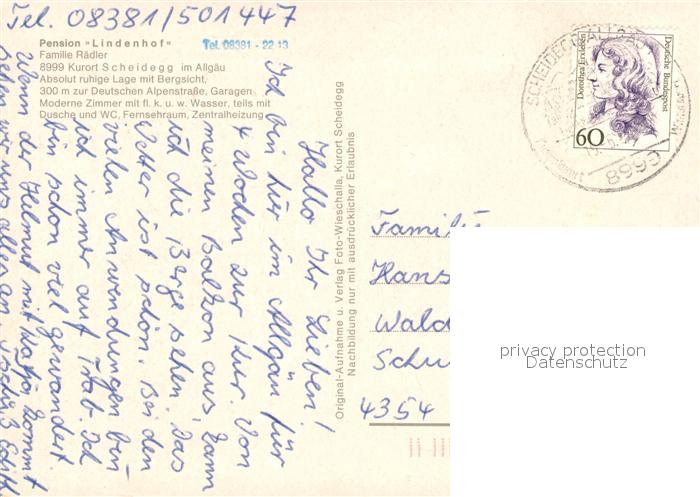 Tel. 08381/501447
Pension »Lindenhof«
Familie Rädler
8999 Kurort Scheidegg im Allgäu
Absolut ruhige Lage mit Bergsicht,
300 m zur Deutschen Alpenstraße, Garagen
Moderne Zimmer mit fl. k. u. w. Wasser, teils mit
Dusche und WC, Fernsehraum, Zentralheizung
Tel. 08381 - 22 13
Hallo Ihr Lieben!
Ich bin hier im Allgäu für
4 Wochen zur Kur. Von
meinem Balkon aus, kann
ich die Berge sehen. Das
Wetter ist schön. Bei den
vielen Anwendungen bin
ich immer auf Trab. Ich
bin schon viel gewandert.
Wenn der Helmut mit Katja kommt
sehen wir uns alles an.
Original-Aufnahme u. Verlag Foto-Wieschalla, Kurort Scheidegg
Nachbildung nur mit ausdrücklicher Erlaubnis
Dorothea Erxleben
Deutsche Bundespost
60
SCHEIDEGG ALLGÄU
8999
Familie
Hans
Wald
Schu
4354
privacy protection
Datenschutz